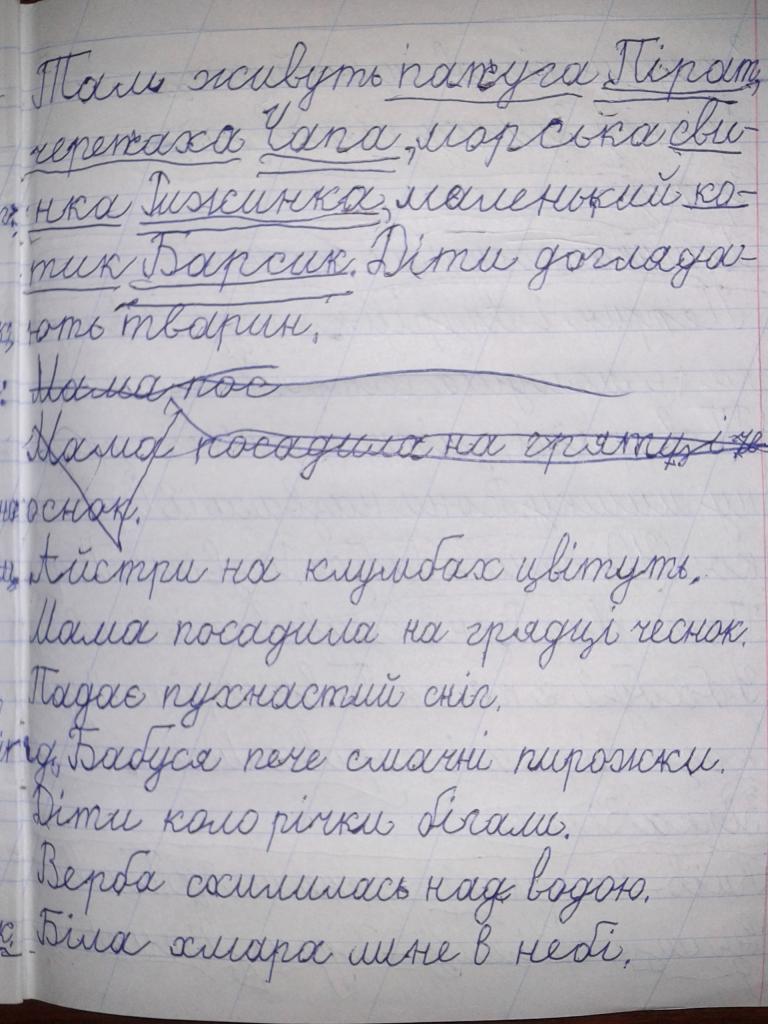 Там живуть папуга Пірат,
черепаха Чапа, морська сви-
нка Рижинка, маленький ко-
тик Барсик. Діти догляда-
ють тварин.
Мама пос
Мама посадила на грятці че
оснок.
Айстри на клумбах цвітуть.
Мама посадила на грядці чеснок.
Падає пухнастий сніг.
Бабуся пече смачні пирожки.
Діти коло річки бігали.
Верба схилилась над водою.
Біла хмара лине в небі.